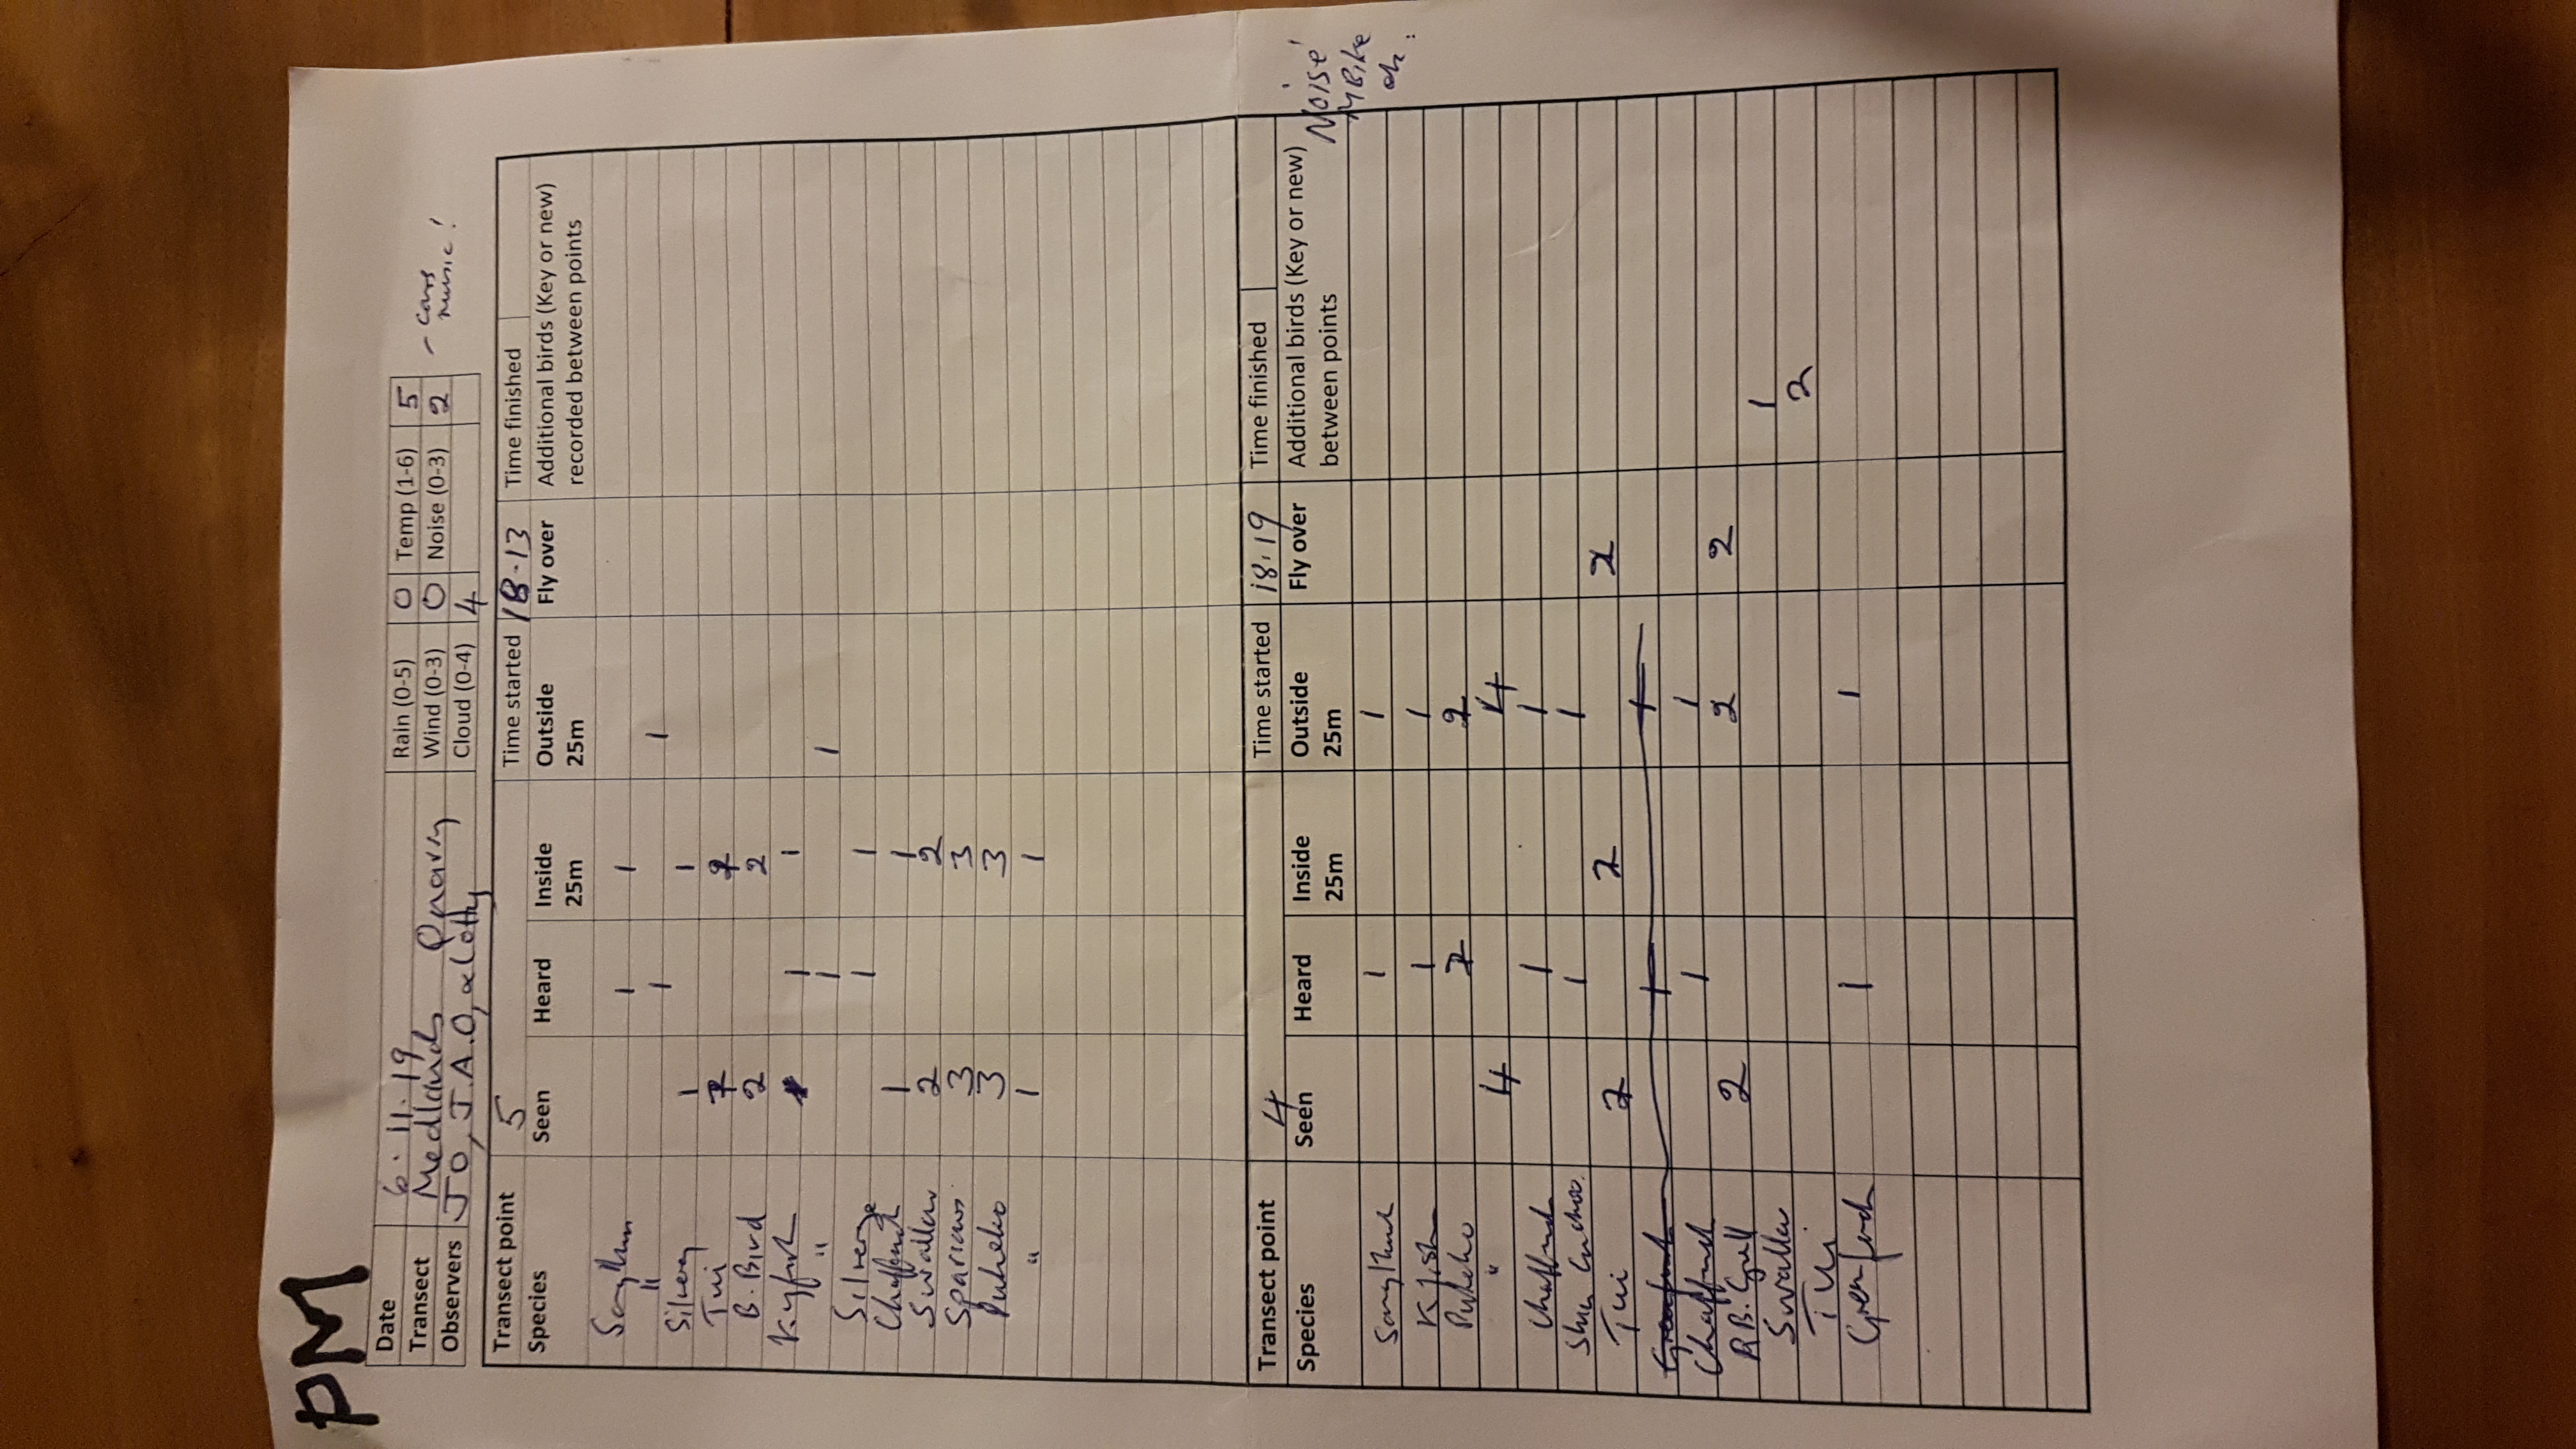 PM
Date 6.11.19 Rain (0-5) 0 Temp (1-6) 5
Transect Medlands Quarry Wind (0-3) 0 Noise (0-3) 2 - cars music!
Observers JO, J.A.O, & Lotty Cloud (0-4) 4
Transect point 5 Time started 18.13 Time finished
Species Seen Heard Inside 25m Outside 25m Fly over Additional birds (Key or new) recorded between points
1 1
" 1 1
1 1
Tui 7
B. Bird 2 2
1 1
" 1 1
Silvereye 1 1
Chaffinch 1 1
Swallow 2 2
Sparrows 3 3
Pukeko 3 3
" 1 1
Transect point 4 Time started 18.19 Time finished
Species Seen Heard Inside 25m Outside 25m Fly over Additional birds (Key or new) between points
Noise
MBike
1 1
K fish 1 1
Pukeko 2
" 4 4
Chaffinch 1 1
Cuckoo. 1 1
Tui 2 2 2
Greenfinch 1 1
Chaffinch 1 1
R.B. Gull 2 2 2
Swallow 1
Tui 2
Greenfinch 1 1